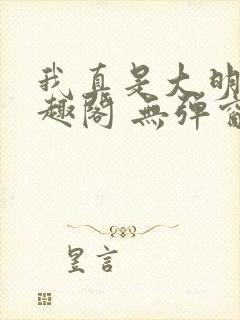 我真是大明
趣阁 無弹窗
昱言